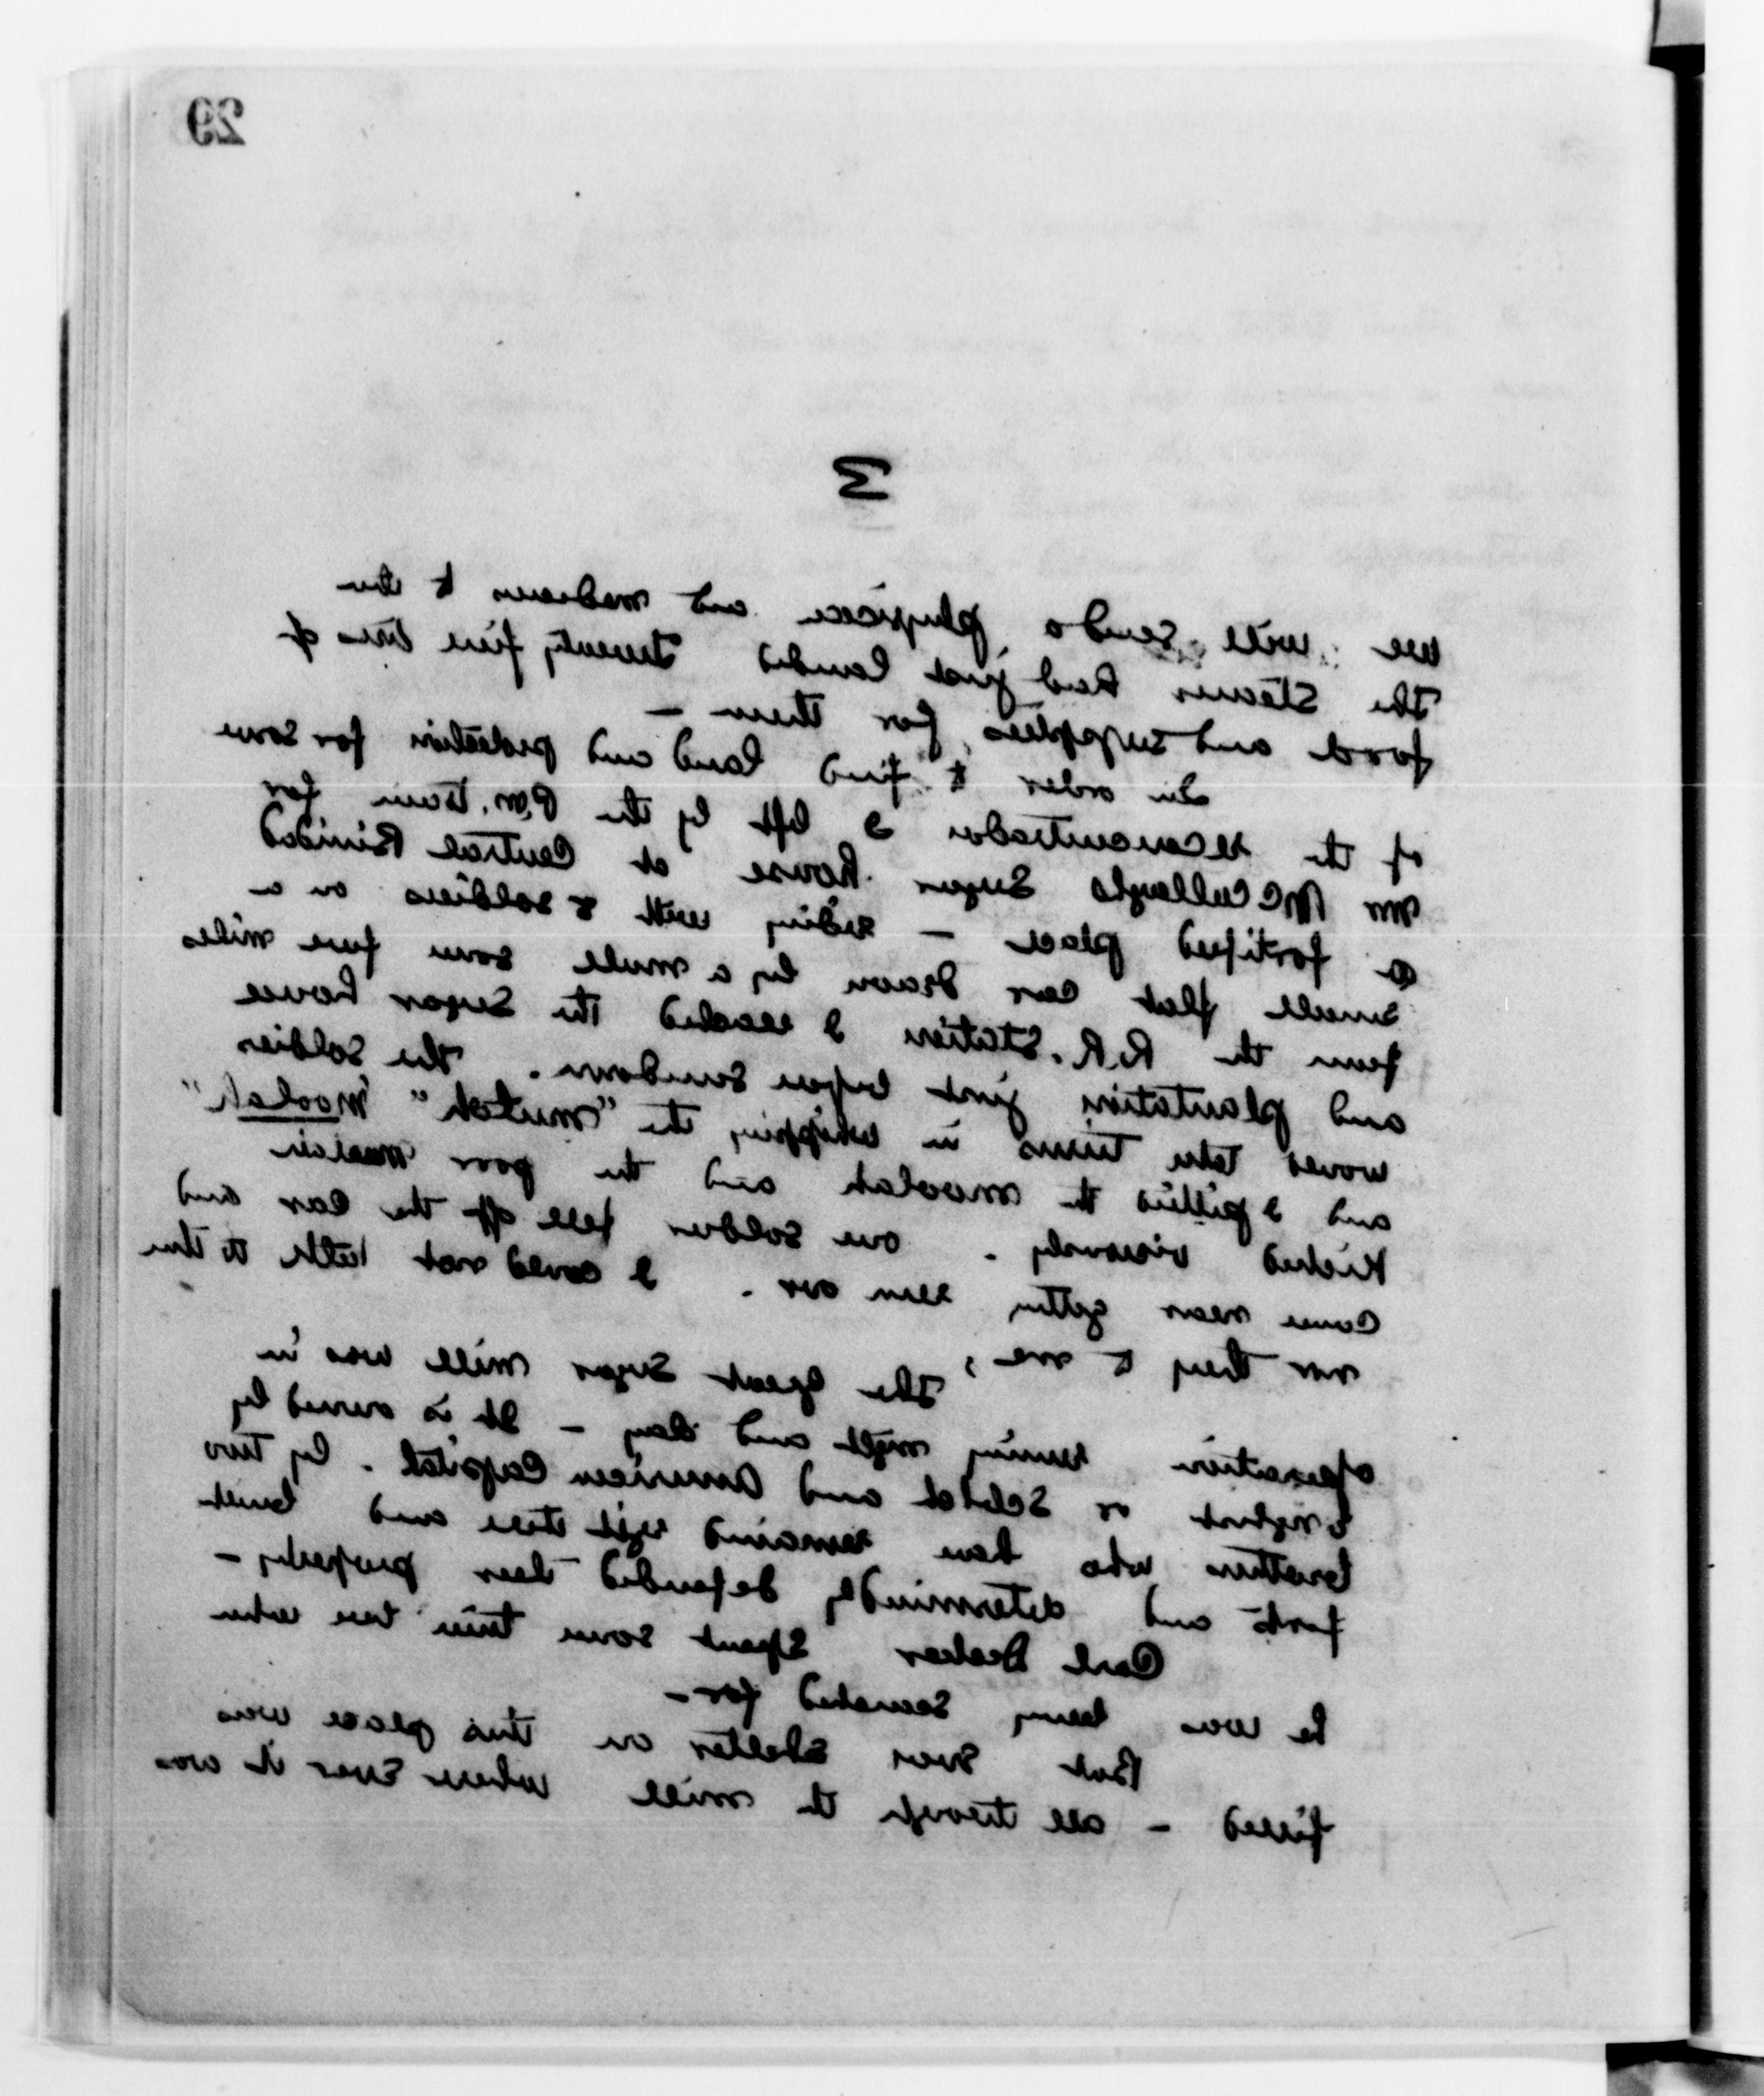 29
3
we will send a physician and medicines to them
The Steamer had just landed Twenty five tons of
food and supplies for them -
In order to find land and protection for some
of the reconcentrados I left by the P.M. train for
Mr McCullaghs Sugar house at Central Trinidad
a fortified place - riding with 8 soldiers on a
small flat car drawn by a mule some five miles
from the R.R. Station I reached the Sugar house
and plantation just before sundown. The soldiers
would take turns in whipping the "mulah" "moolah"
and I pitied the moolah and the poor
Kicked viciously. one soldier fell off the car and
came near getting run over. I could not talk to them
nor they to me,
The great Sugar mill was in
operation runing night and day - It is owned by
English or Scotch and American Capital. by two
brothers who have remained right there and built
forts and determindly defended their property -
Carl Decker Spent some time here when
he was being searched for -
But even shelter on this place was
filled - all through the mill where ever it was